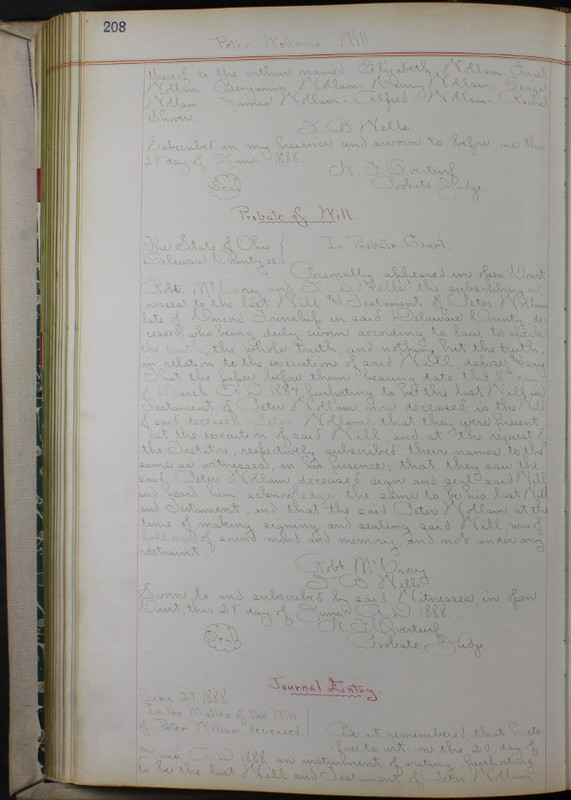 208
Peter Wollams Will
thereof to the within named Elizabeth Wollam, Israel
Wollam. Benjamin Wollam. Henry Wollam. George
Wollam. James Wollam. Alfred Wollam. Rachel
Shover.
Subscribed in my presence and sworn to before me this
28" day of June 1888.
N. F. Overturf
Seal Probate Judge
Probate of Will
The State of Ohio In Probate Court.
Delaware County ss:
Personally appeared in open Court
Robt McCrory and the subscribing wit
nesses to the last Will and Testament of Peter Wollam
late of Concord Township in said Delaware County, de
ceased, who being duly sworn according to law, to speak
the truth, the whole truth, and nothing but the truth,
in relation to the execution of said Will, depose & say
That the paper before them bearing date the 8th day
of March A.D. 1887, purporting to be the last Will and
Testament of Peter Wollam now deceased, is the Will
of said deceased Peter Wollam, that they were present
at the execution of said Will, and at the request of
the Testator, respectively subscribed their names to the
same as witnesses, in his presence; that they saw the
said Peter Wollam, deceased, sign and seal said Will
and heard him acknowledge the same to be his last Will
and Testament, and that the said Peter Wollam at the
time of making, signing and sealing said Will, was of
full age, of sound mind and memory, and not under any
restraint.
Robt McCrory
Sworn to and subscribed by said Witnesses, in open
Court, this 28" day of June A.D. 1888
N. F. Overturf
Seal Probate Judge
Journal Entry.
June 28 1888.
In the Matter of the Will
of Peter Wollam deceased. Be it remembered that hereto-
fore to wit: on the 20" day of
June A.D. 1888 an instrument of writing, purporting
to be the last Will and Testament of Peter Wollam